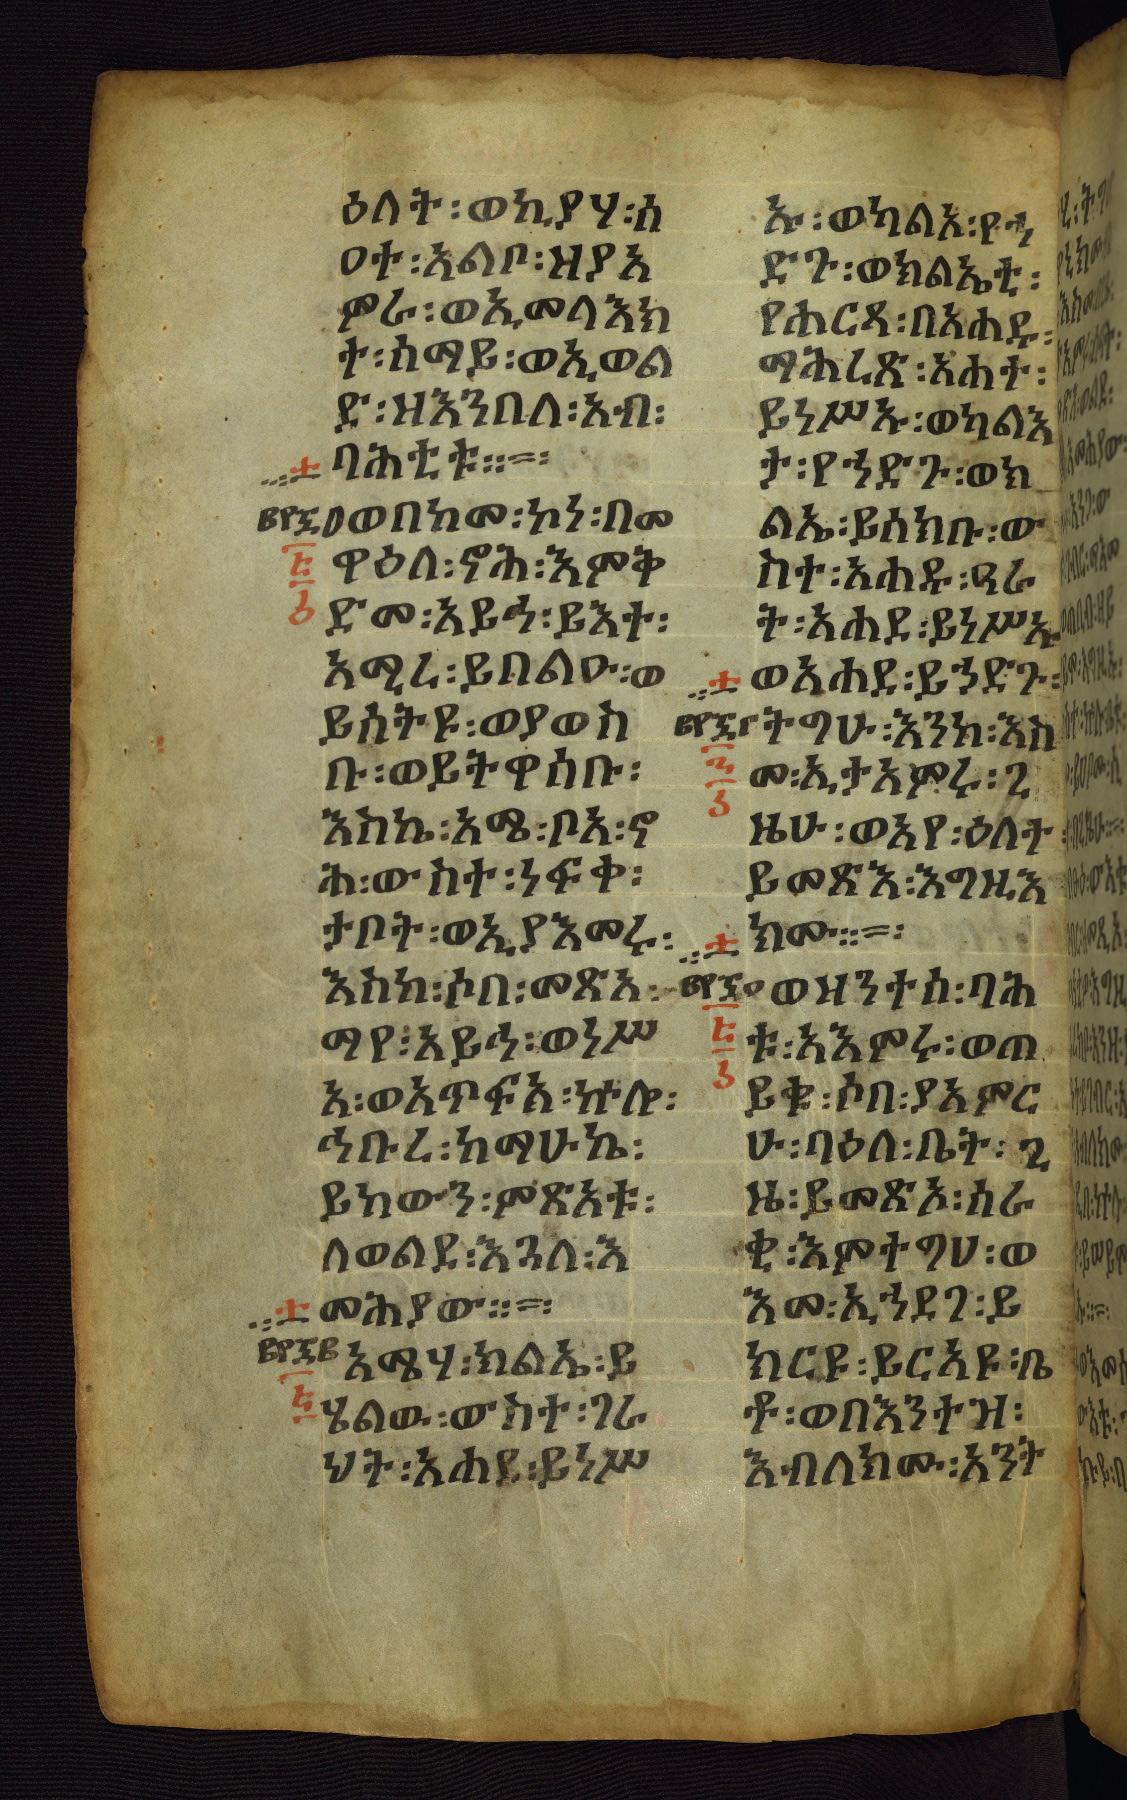 ዕለት፡ወኪያሃ፡ሰ
ዐተ፡አልቦ፡ዘያአ
ምራ፡ወኢመላእክ
ተ፡ሰማይ፡ወኢወል
ድ፡ዘእንበለ፡አብ፡
ባሕቲቱ፡፡=፡
ወበከመ፡ኮነ፡በመ
ዋዕለ፡ኖሕ፡እምቅ
ድመ፡አይኅ፡ይእተ፡
አሚረ፡ይበልዑ፡ወ
ይሰትዩ፡ወያወስ
ቡ፡ወይትዋሰቡ፡
እስከ፡አሜ፡ቦአ፡ኖ
ሕ፡ውስተ፡ነፍቀ፡
ታቦት፡ወኢያእመሩ፡
እስከ፡ሶበ፡መጽአ፡
ማየ፡አይኅ፡ወነሥ
አ፡ወአጥፍአ፡ኵሎ፡
ኅቡረ፡ከማሁኬ፡
ይከውን፡ምጽአቱ፡
ለወልደ፡እጓለ፡እ
መሕያው፡፡=፡
አሜሃ፡ክልኤ፡ይ
ሄልዉ፡ውስተ፡ገራ
ህት፡አሐደ፡ይነሥ
ኡ፡ወካልአ፡የኀ
ድጉ፡ወክልኤቲ፡
የሐርጻ፡በአሐዱ፡
ማሕረጽ፡አሐተ፡
ይነሥኡ፡ወካልእ
ታ፡የኀድጉ፡ወክ
ልኤ፡ይሰክቡ፡ው
ስተ፡አሐዱ፡ዓራ
ት፡አሐደ፡ይነሥኡ
ወአሐደ፡ይኀድጉ፡
ትግሁ፡እንከ፡እስ
መ፡ኢታአምሩ፡ጊ
ዜሁ፡ወአየ፡ዕለት፡
ይመጽእ፡እግዚእ
ክሙ፡፡=፡
ወዝንተሰ፡ባሕ
ቱ፡አእምሩ፡ወጠ
ይቁ፡ሶበ፡ያአምር
ሁ፡ባዕለ፡ቤት፡ጊ
ዜ፡ይመጽኦ፡ሰራ
ቂ፡እምተግሀ፡ወ
እመ፡ኢኀደገ፡ይ
ክርዩ፡ይርአዩ፡ቤ
ቶ፡ወበእንተዝ፡
እብለክሙ፡አንት